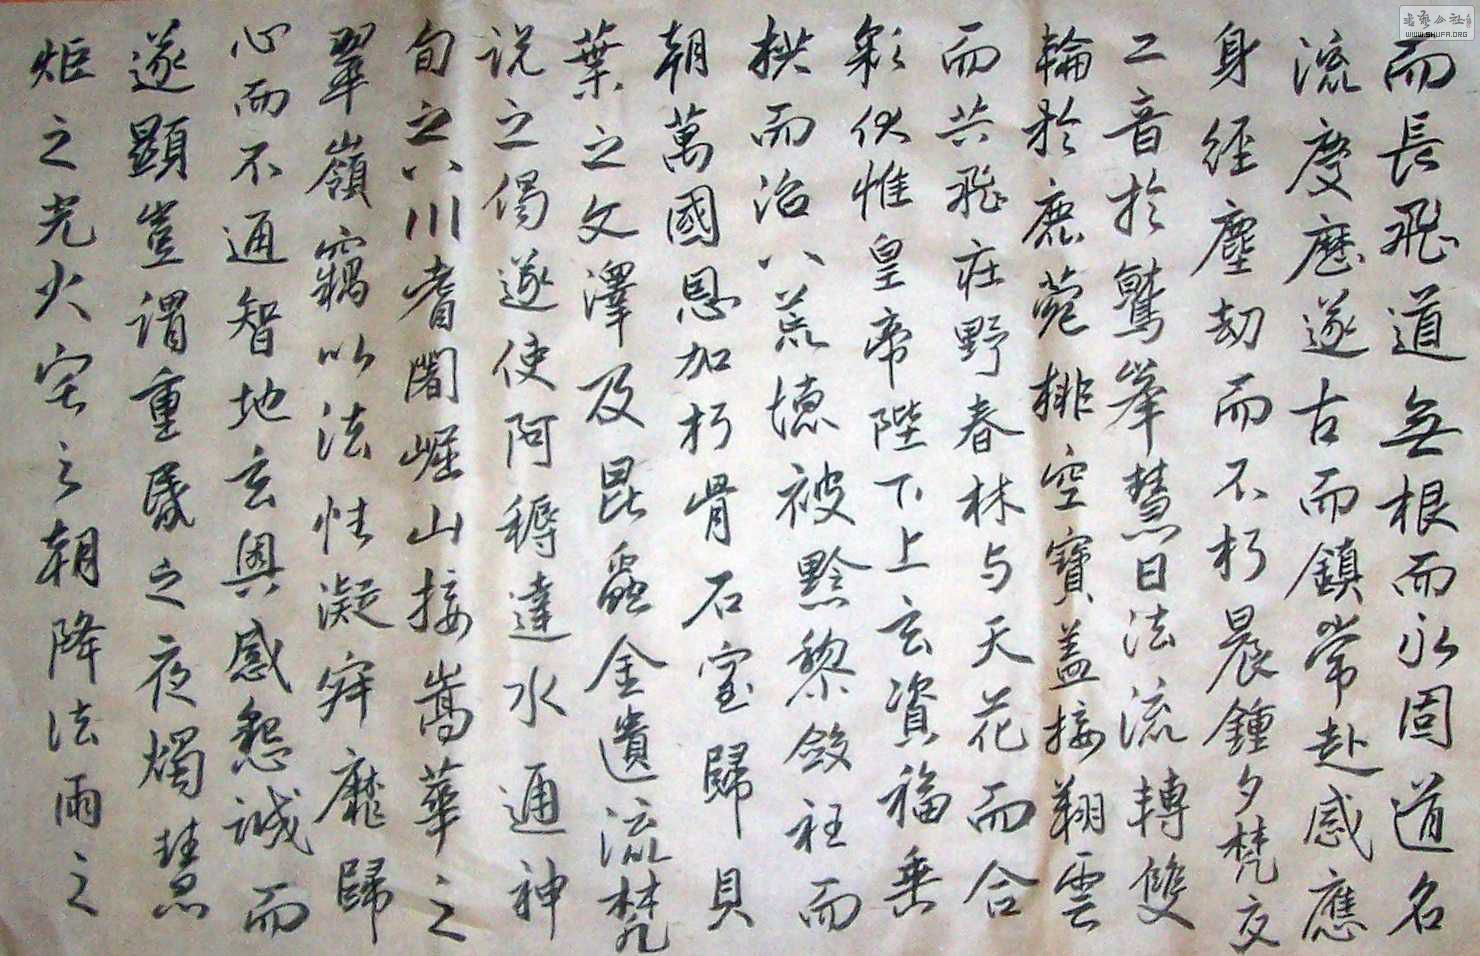 而長飛道無根而永固道名
流慶歷遂古而鎮常赴感應
身經塵劫而不朽晨鍾夕梵交
二音於鷲峯慧日法流轉雙
輪於鹿菀排空寶蓋接翔雲
而共飛庄野春林与天花而合
彩伏惟皇帝陛下上玄資福垂
拱而治八荒德被黔黎斂衽而
朝萬國恩加朽骨石室歸貝
葉之文澤及昆蟲金遺流梵
说之偈遂使阿耨達水通神
旬之八川耆闍崛山接嵩華之
翠嶺竊以法性凝寂靡歸
心而不通智地玄奧感懇誠而
遂顯豈謂重昏之夜燭慧
炬之光火宅之朝降法雨之
书艺公社
WWW.SHUFA.ORG